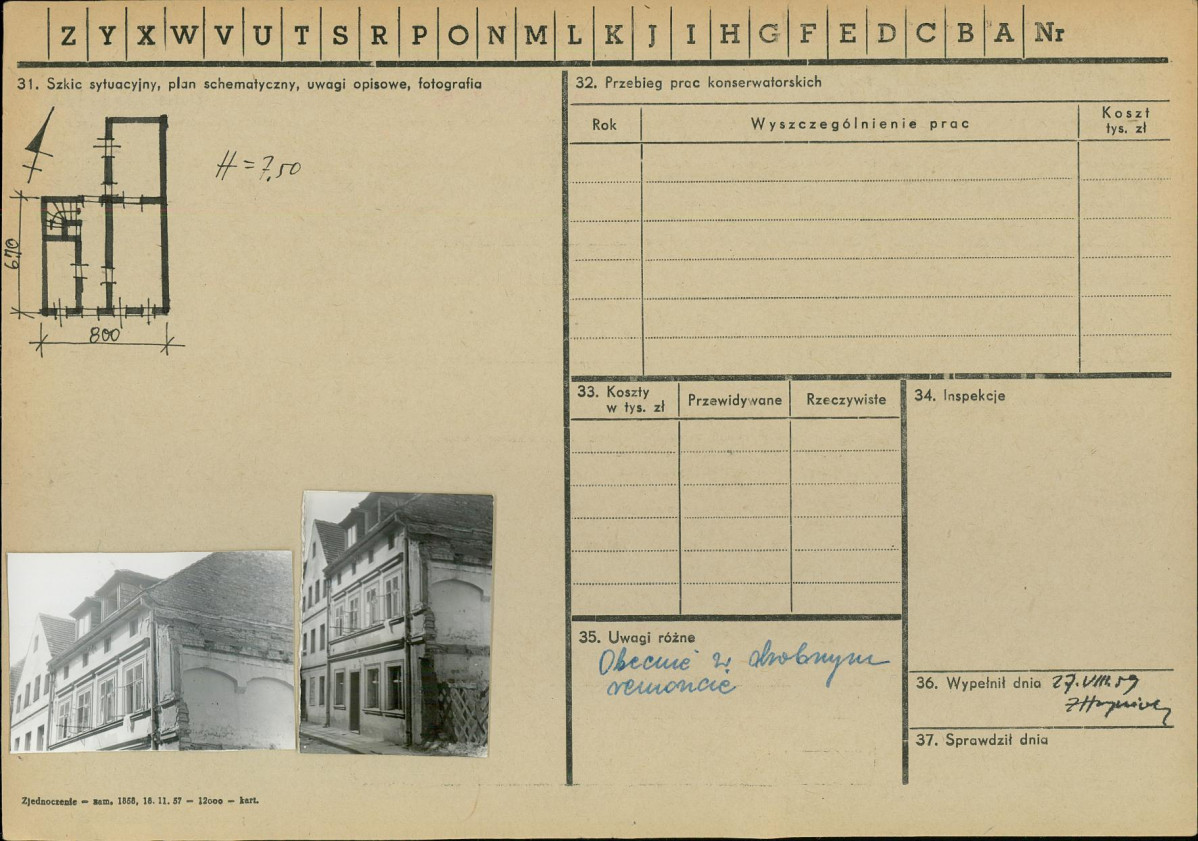 Z Y X W V U T S R P O N M L K J I H G F E D C B A Nr
31. Szkic sytuacyjny, plan schematyczny, uwagi opisowe, fotografia
H = 7,50
6,70
800
32. Przebieg prac konserwatorskich
Rok
Wyszczególnienie prac
Koszt
tys. zł
33. Koszty
w tys. zł
Przewidywane
Rzeczywiste
34. Inspekcje
35. Uwagi różne
Obecnie w drobnym
remoncie
36. Wypełnił dnia 27.VIII.59
37. Sprawdził dnia
Zjednoczenie — zam. 1858, 18. 11. 57 — 12000 — kart.